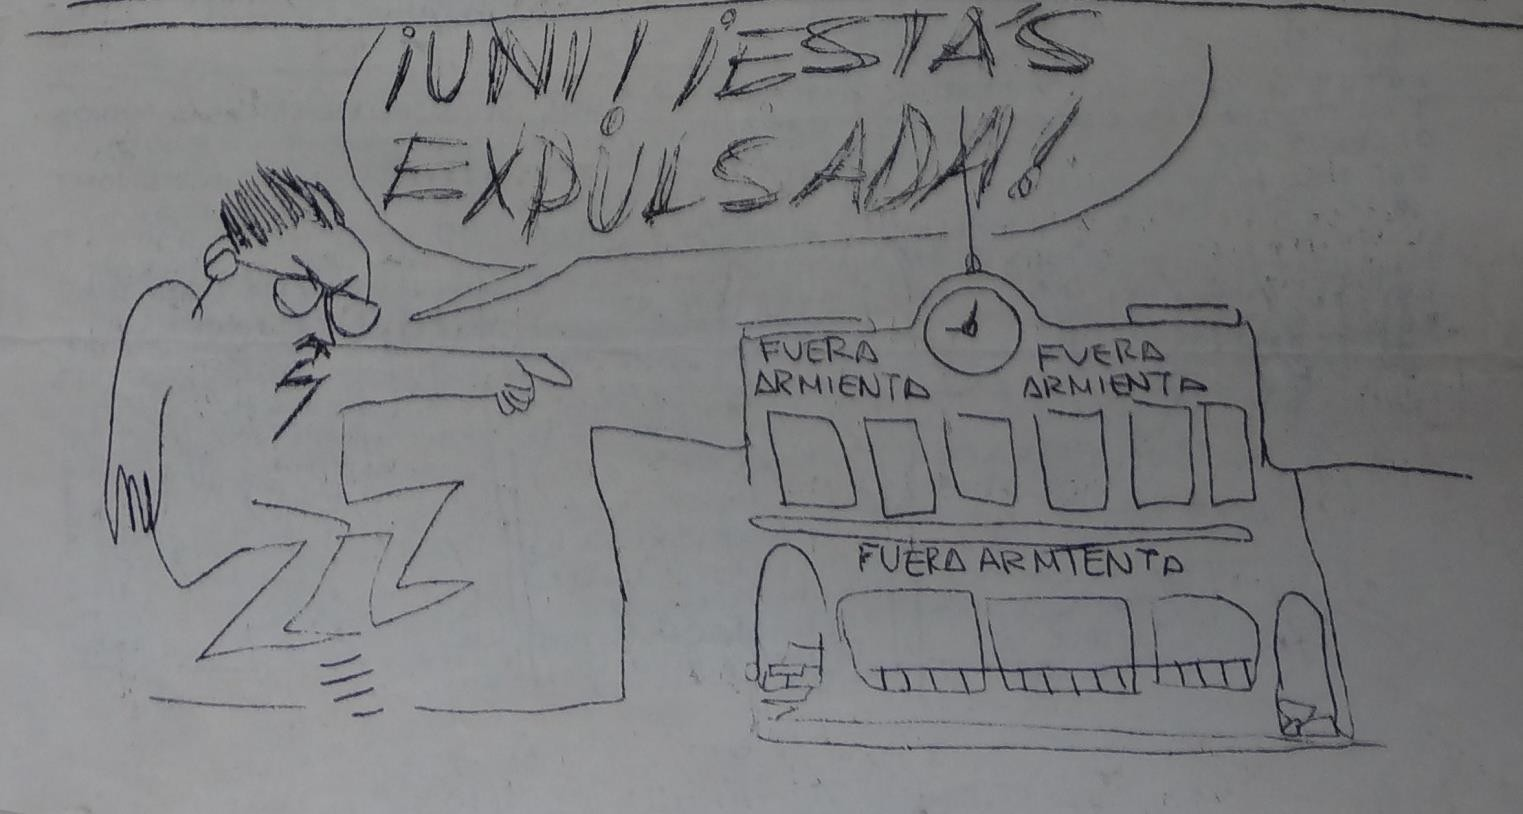 ¡UNI! ¡ESTÁS
EXPULSADA!
FUERA
ARMIENTA
FUERA
ARMIENTA
FUERA ARMIENTA